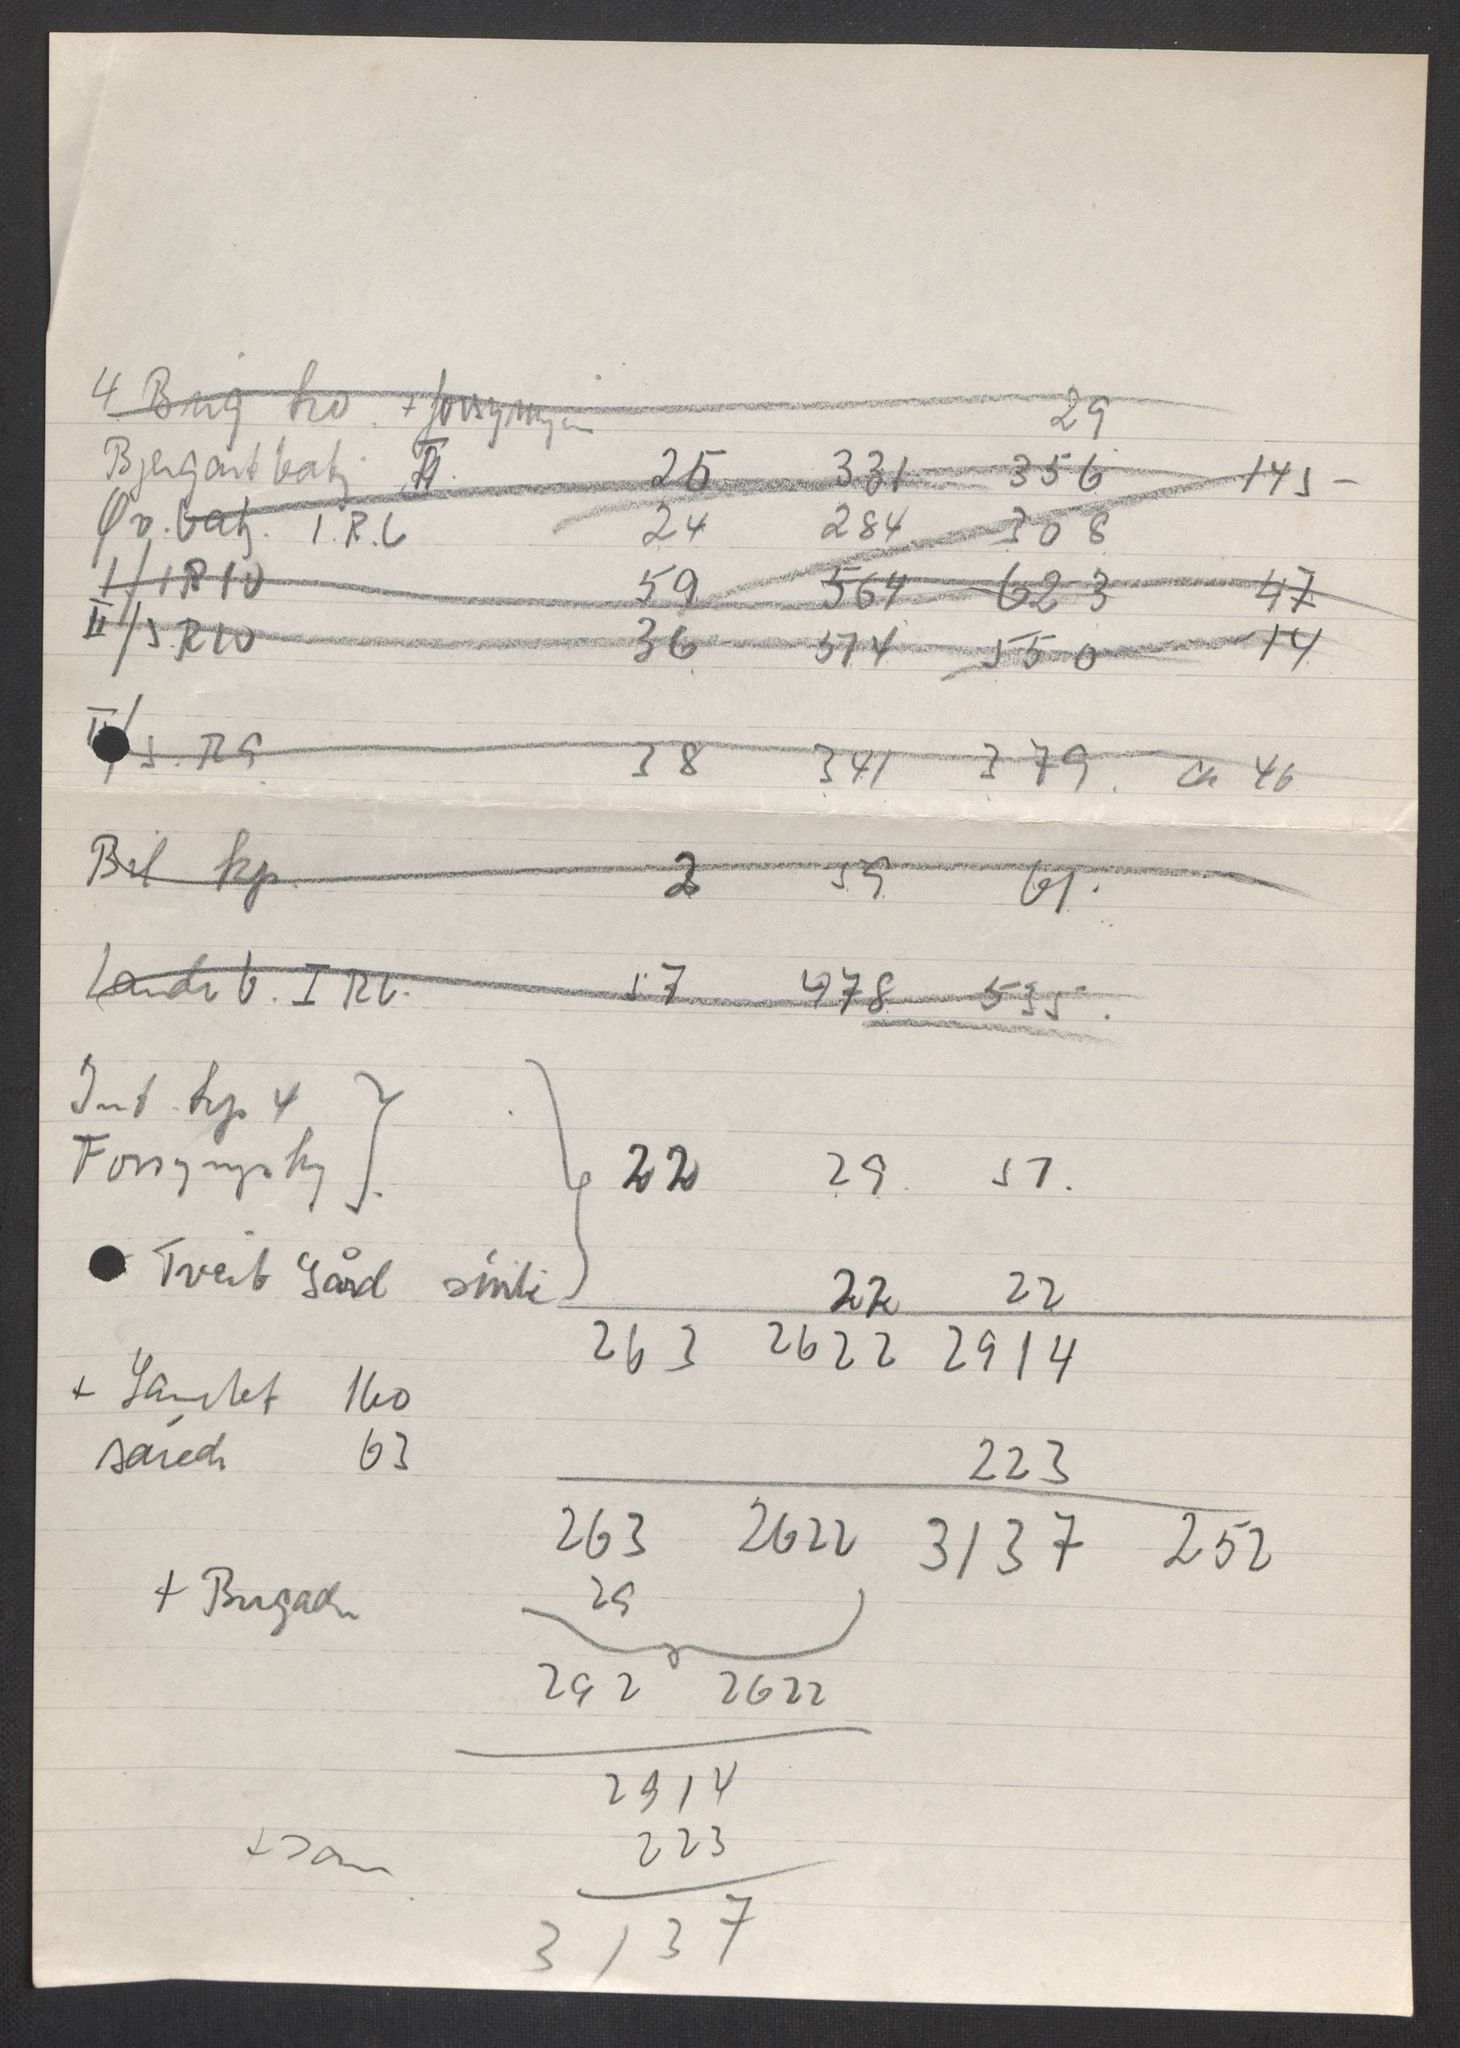 4 Brig ko. + forsyning 29
Bergartbatj II. 25 331 356 145 -
Øv. batj. I.R.6 24 284 308
I/IR10 59 564 623 47
II/I.R10 36 514 550 14
II/I.R9 38 341 379. ca 46
Bil kp. 2 59 61.
Landv b. I R6. 57 478 535.
Int. kp 4
Forsyningskp 22 29. 51.
Tveit Gård sivile 22 22
263 2622 2914
+ Samlet 160
sårede 63 223
263 2622 3137 252
+ Brigaden 29
292 2622
2914
+ san 223
3137